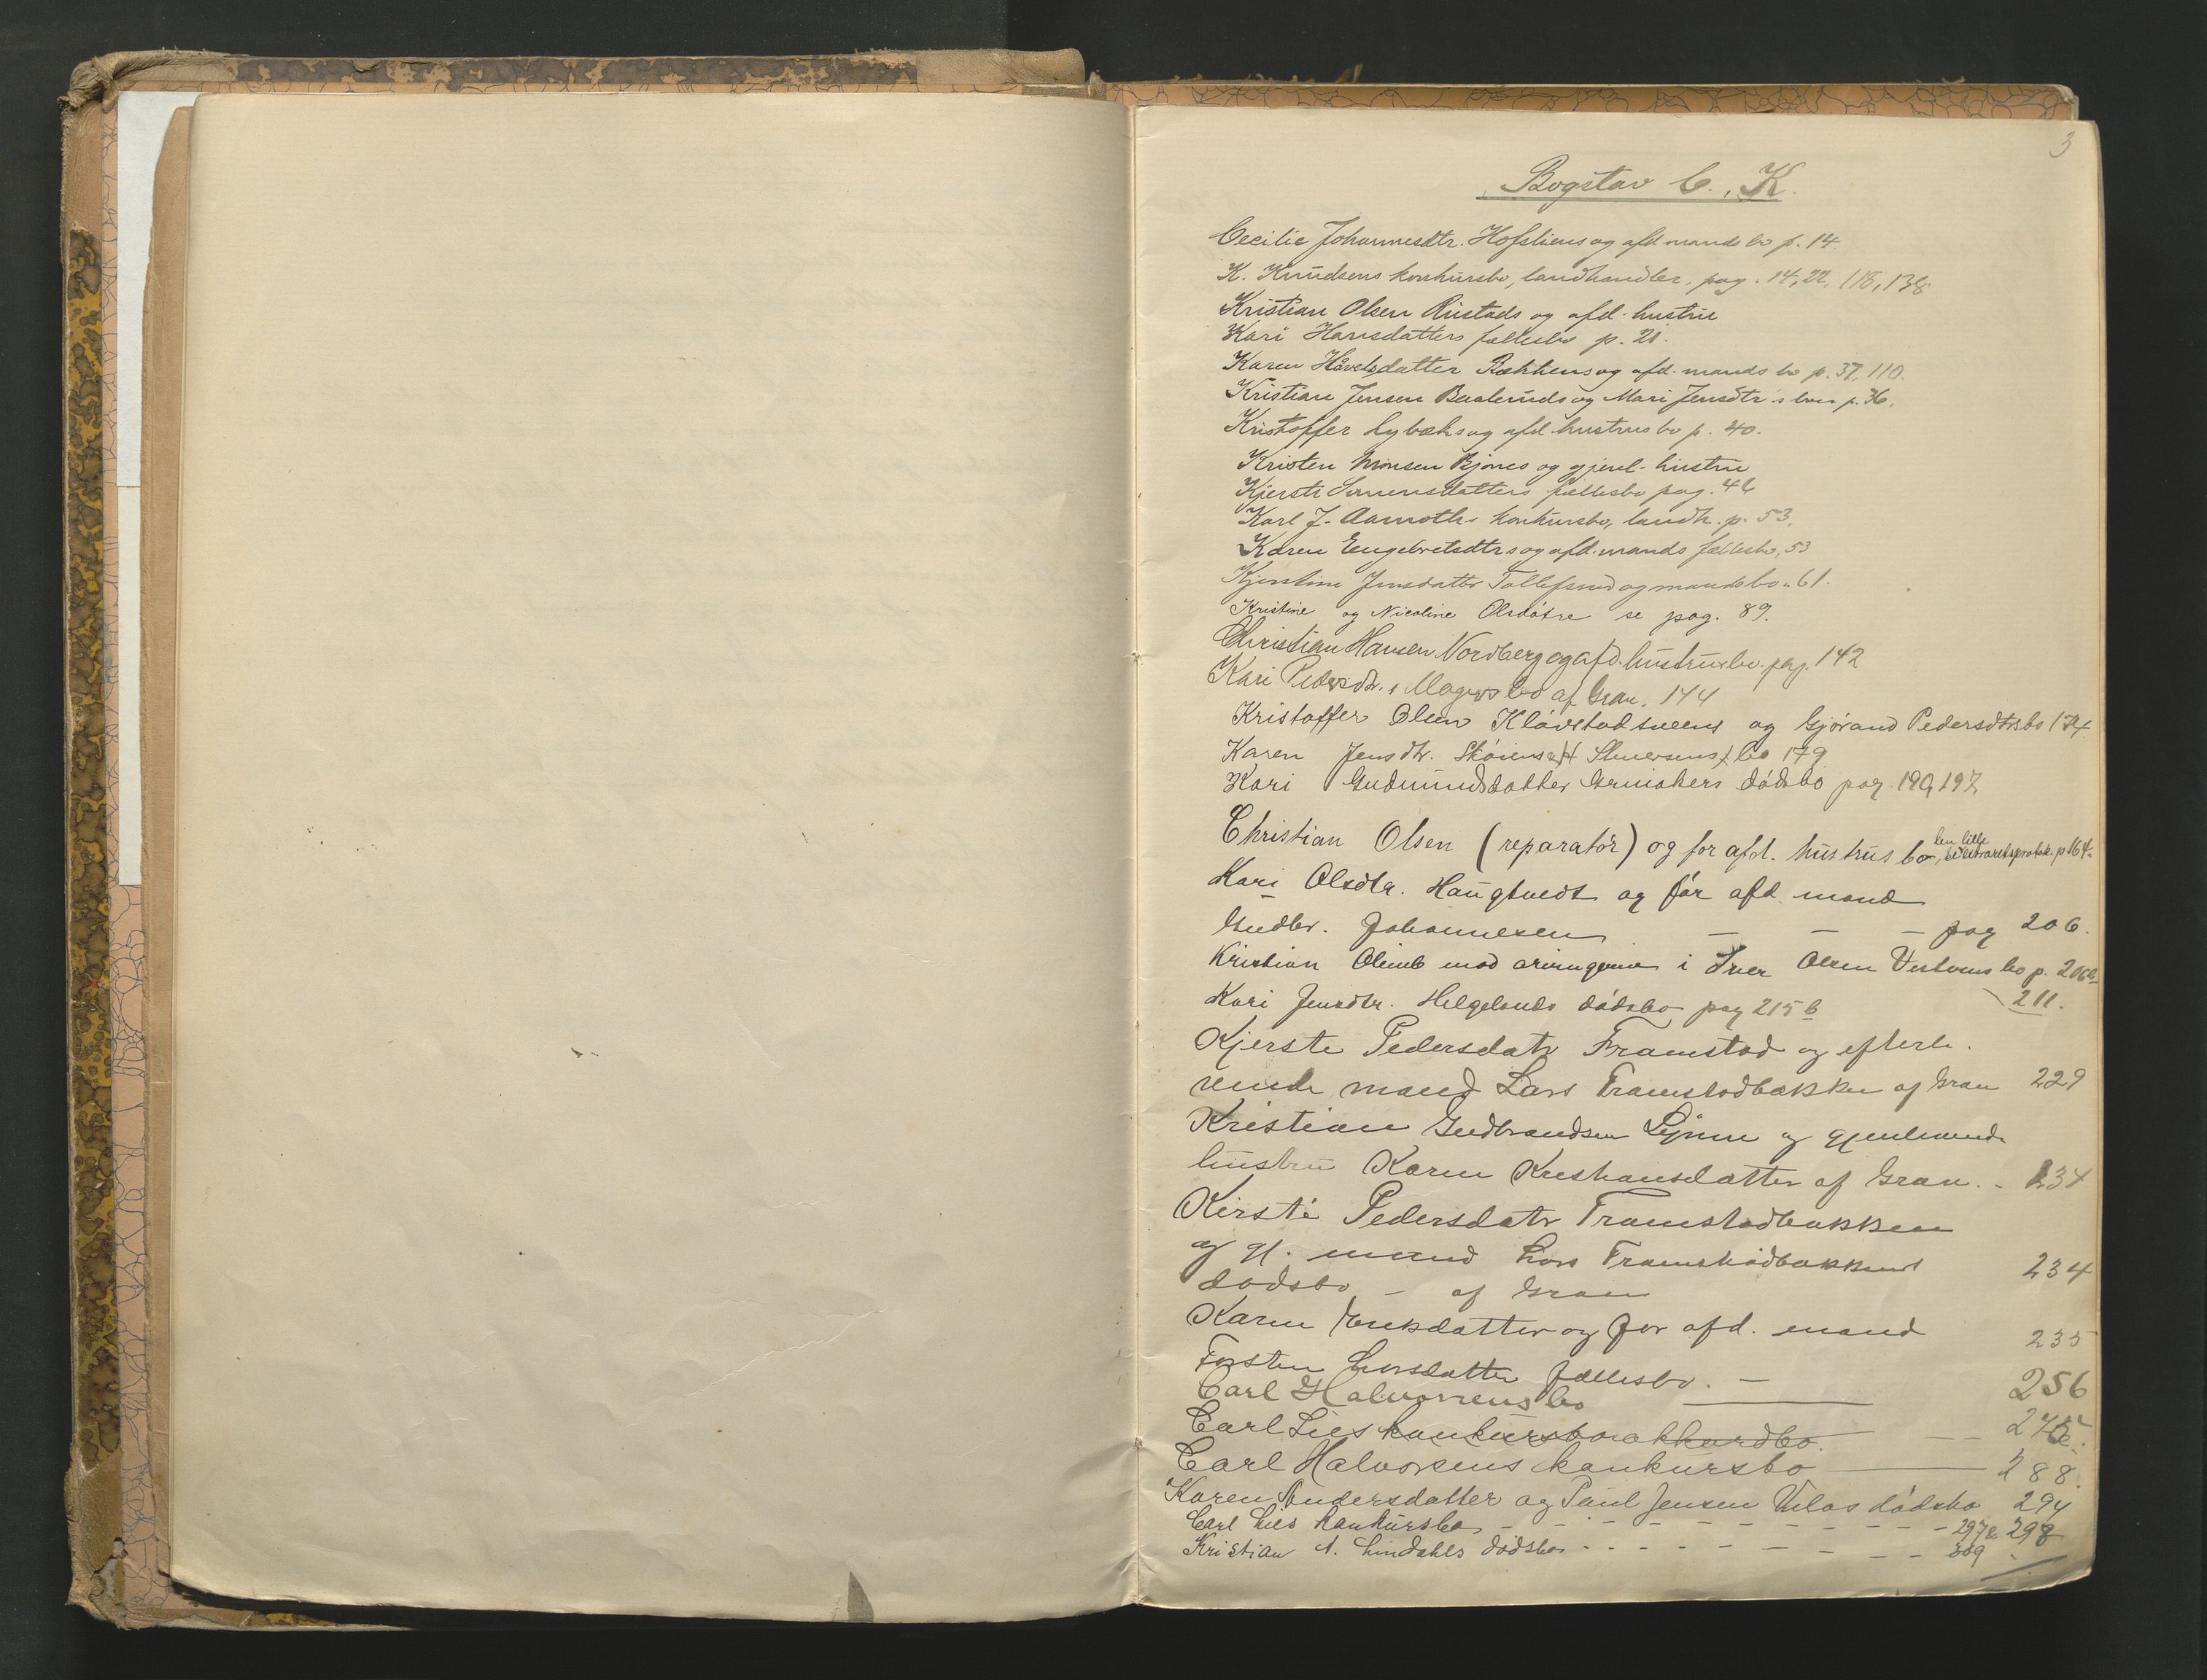 3
Bogstav C., K.
Cecilie Johannesdtr. Hofsliens og afd mands bo p. 14.
K. Knudsens konkursbo, landhandler, pag. 14, 22, 118, 138
Kristian Olsen Rustads og afd. hustru
Kari Hansdatters fællesbo p. 21.
Karen Håvelsdatter Bækkens og afd. mands bo p. 37, 110.
Kristian Jensen Baaleruds og Mari Jensdtr's boer p. 36.
Kristoffer Lybæks og afd. hustrus bo p. 40.
Kristen Monsen og gjenl. hustru
Kjersti datters fællesbo pag. 46
Karl J. Aamoths konkursbo, landh. p. 53.
Karen Engebretsdtrs og afd. mands fællesbo, 53
Kjerstine Jensdatter Tollefsrud og mands bo " 61.
Kristine og Nicoline Olsdøtre se pag. 89.
Christian Hansen Nordberg og afd. hustrus bo. pag. 142
Kari Pedersdtr. s Magers bo af Gran. 144
Kristoffer Olsen Kløvstadsveens og Gjørand Pedersdtrs bo 174
Karen Jensdtr. bo 179
Kari Gudmundsdatter Grinakers dødsbo pag. 190, 197
Christian Olsen (reparatør) og før afd. hustrus bo, den lille p 164.
Kari Olsdtr. Haugtvedt og før afd. mand
Gudbr. Johannesen — — — pag 206.
Kristian mod arvingerne i Iver Olsen bo p. 206b
211.
Kari Jensdtr. Helgelands dødsbo pag 215 b
Kjersti Pedersdatr Framstad og efterle-
vende mand Lars Framstadbakken af Gran 229
Kristian Gudbrandsen Lynne og gjenlevende
hustru Karen Kristiansdatter af Gran. - 234
Kirsti Pedersdatr Framstadbakken
og gl. mand Lars Framstadbakkens 234
dødsbo - af Gran
Karen Eriksdatter og før afd. mand 235
Torsten Larsdatter fællesbo. —
Carl Halvorsens bo — 256
Carl Lies konkursbo akkordbo. — — 275
Carl Halvorsens konkursbo — 288.
Karen Andersdatter og Paul Jensen Velos dødsbo 294
Carl Lies konkursbo - - - - - - 297 & 298
Kristian A. Lindahls dødsbo - - - - - - 309